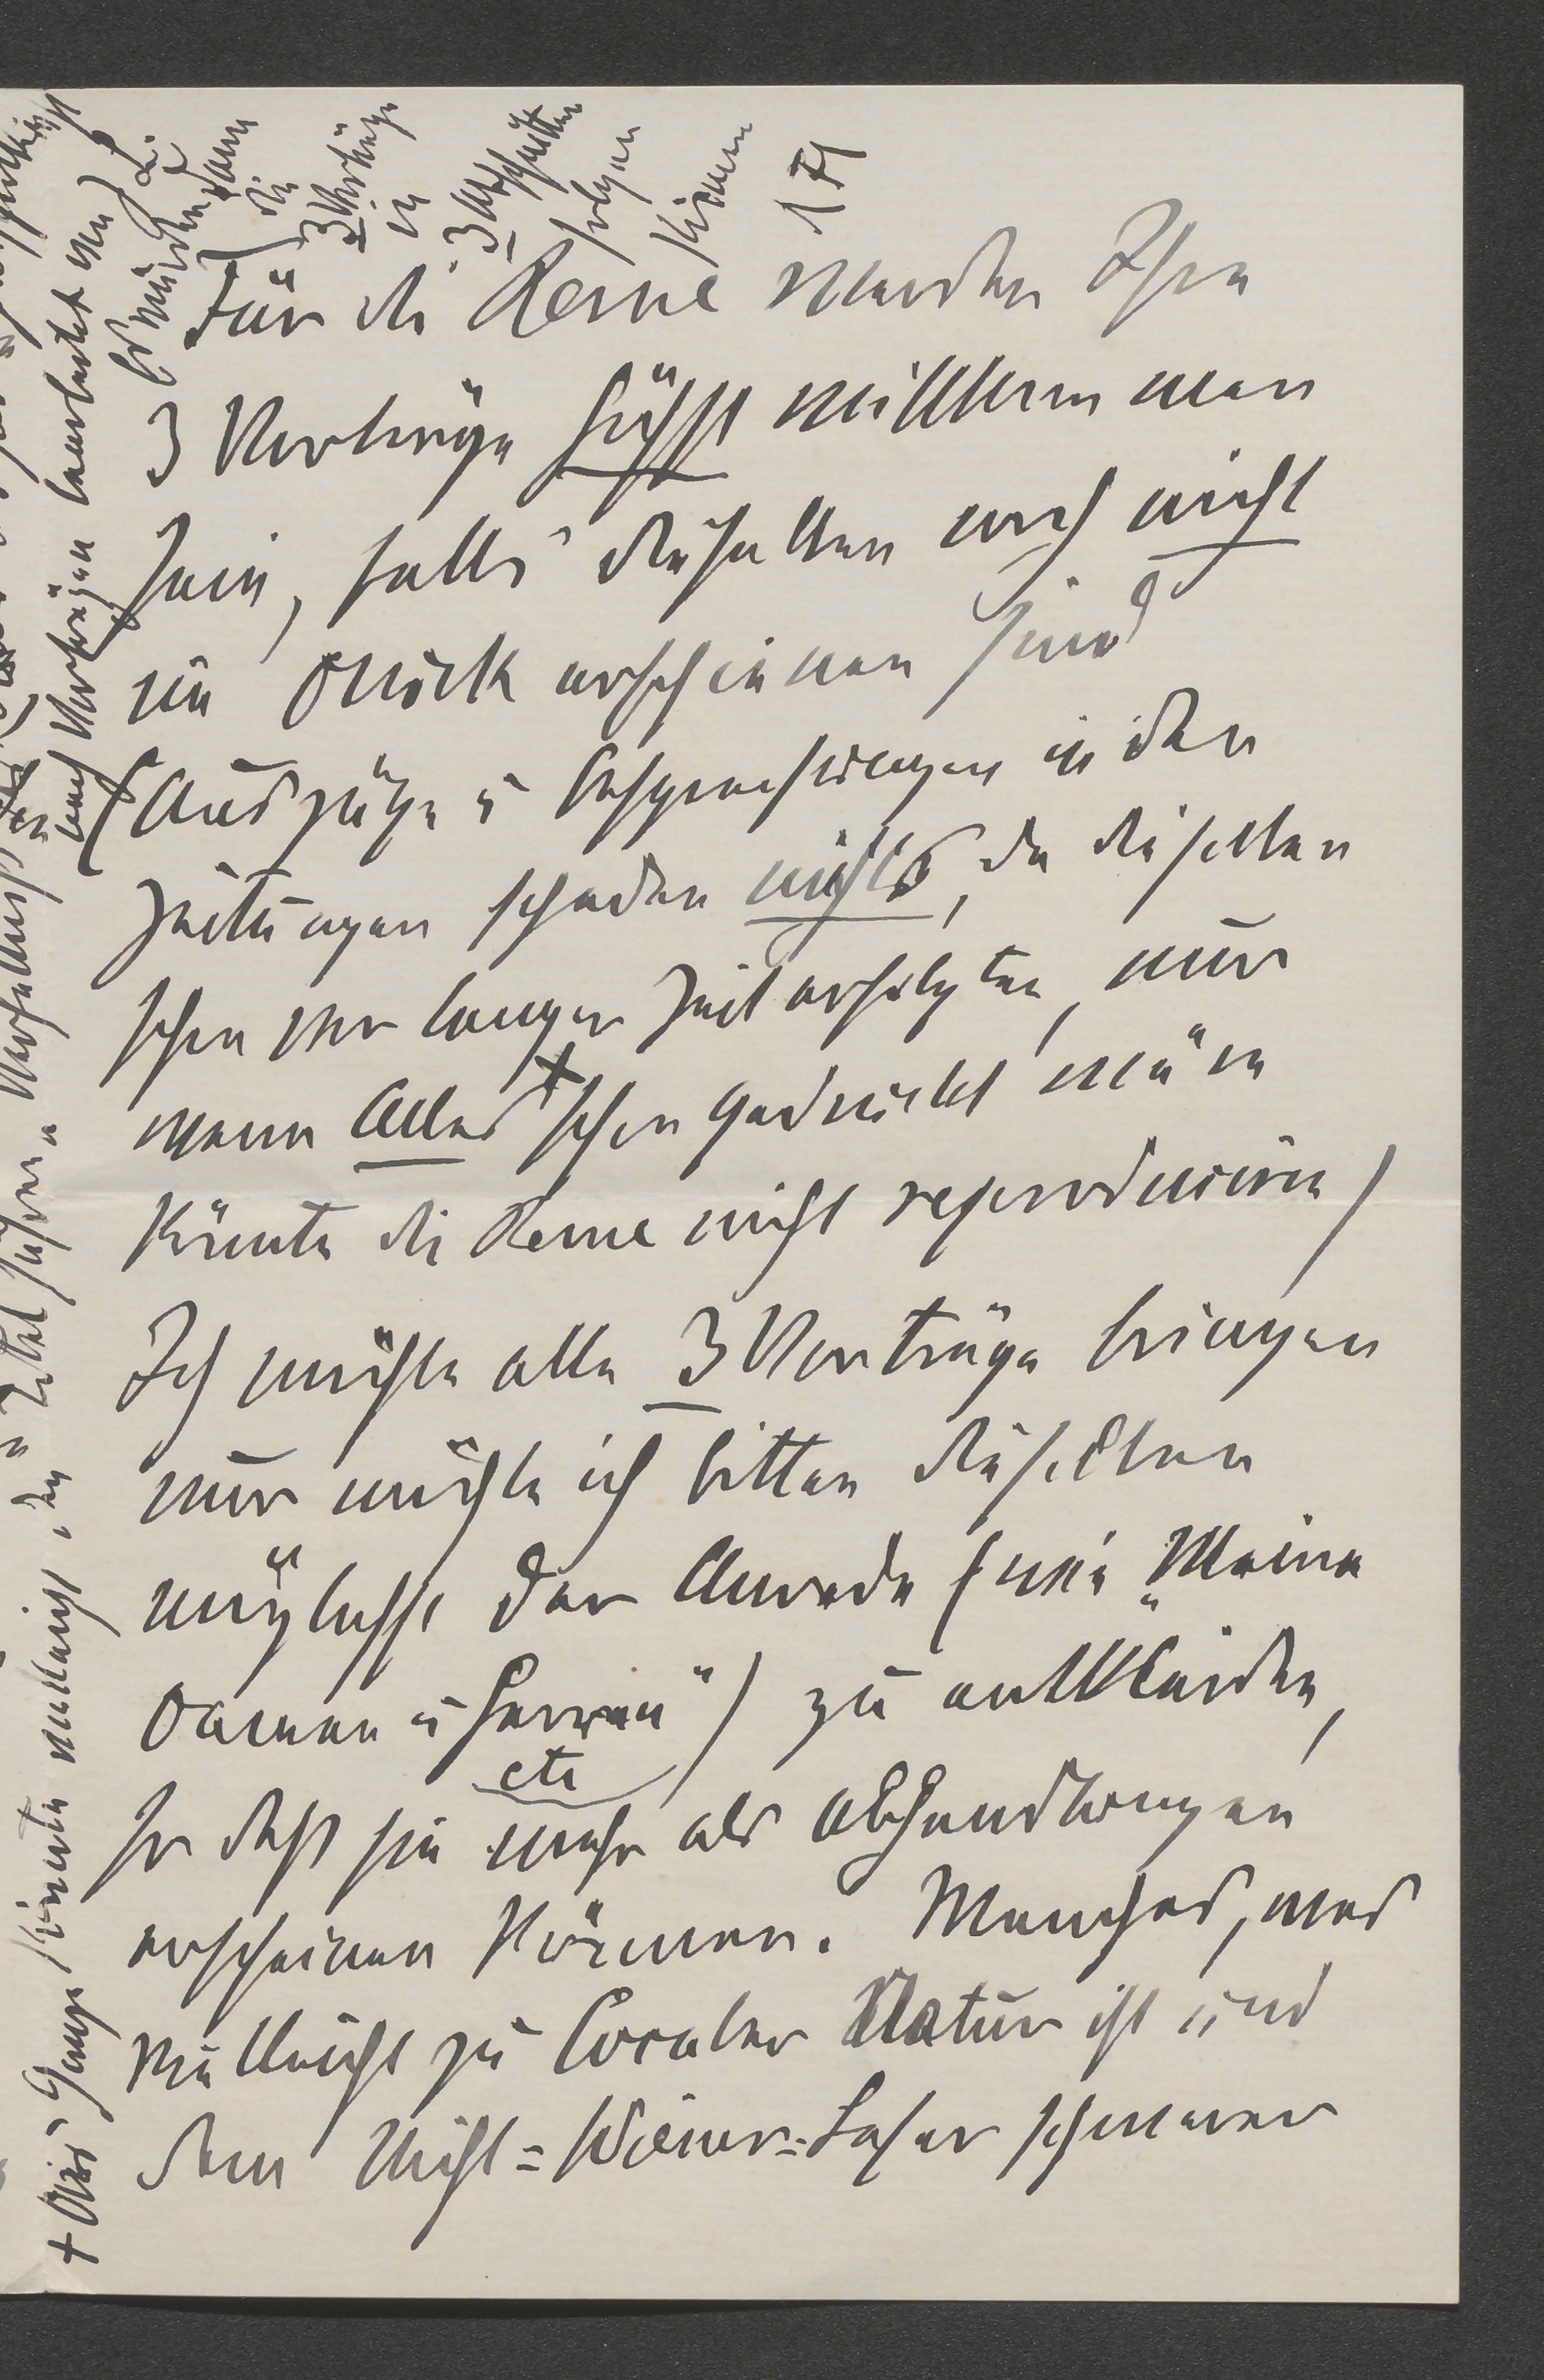 Für die Revue werden Ihre
3 Vorträge höchst willkommen
sein, falls dieselben noch nicht
im Druck erschienen sind
(Auszüge u Besprechungen in den
Zeitungen schaden nichts, da dieselben
schon vor langer Zeit erfolgten, nur
wenn Alles + schon gedruckt wäre
könnte die Revue nicht reproduciren)
Ich möchte alle 3 Vorträge bringen
nur möchte ich bitten dieselben
möglichst der Anrede (wie „Meine
Damen u Herren“) zu entkleiden,
etc
so daß sie mehr als Abhandlungen
erscheinen können. Manches, was
vielleicht zu localer Natur ist und
dem Nicht=Wiener=Leser schwerer
+ Das Ganze könnte vielleicht den Titel führen „
nach Vorträgen bearbeitet von)
Es würden dann
die
3 Vorträge
in
3 Abschnitten
folgen
können